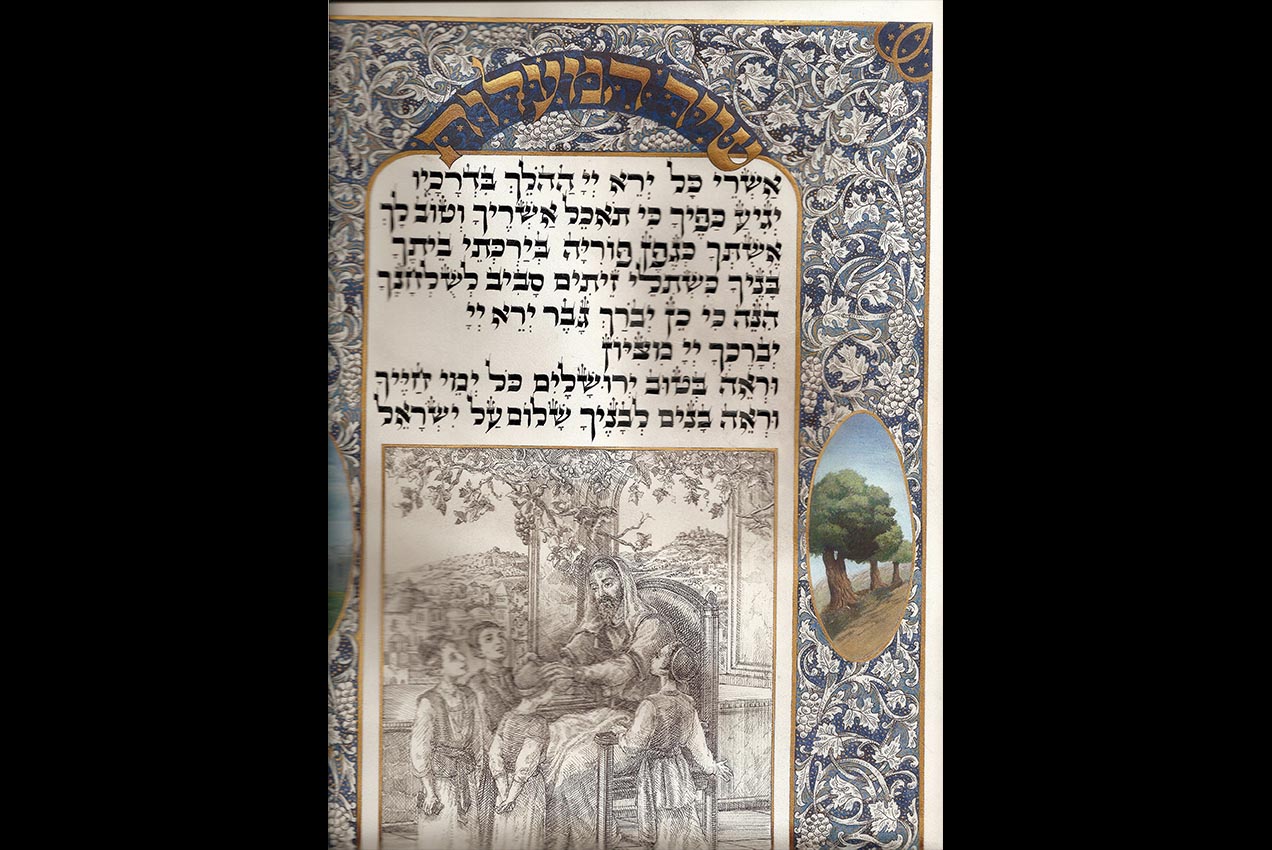 שיר המעלות
אַשְׁרֵי כָּל יְרֵא יְיָ הַהֹלֵךְ בִּדְרָכָיו
יְגִיעַ כַּפֶּיךָ כִּי תֹאכֵל אַשְׁרֶיךָ וְטוֹב לָךְ
אֶשְׁתְּךָ כְּגֶפֶן פּוֹרִיָּה בְּיַרְכְּתֵי בֵיתֶךָ
בָּנֶיךָ כִּשְׁתִלֵי זֵיתִים סָבִיב לְשֻׁלְחָנֶךָ
הִנֵּה כִי כֵן יְבֹרַךְ גָּבֶר יְרֵא יְיָ
יְבָרֶכְךָ יְיָ מִצִּיּוֹן
וּרְאֵה בְּטוּב יְרוּשָׁלָיִם כֹּל יְמֵי חַיֶּיךָ
וּרְאֵה בָנִים לְבָנֶיךָ שָׁלוֹם עַל יִשְׂרָאֵל